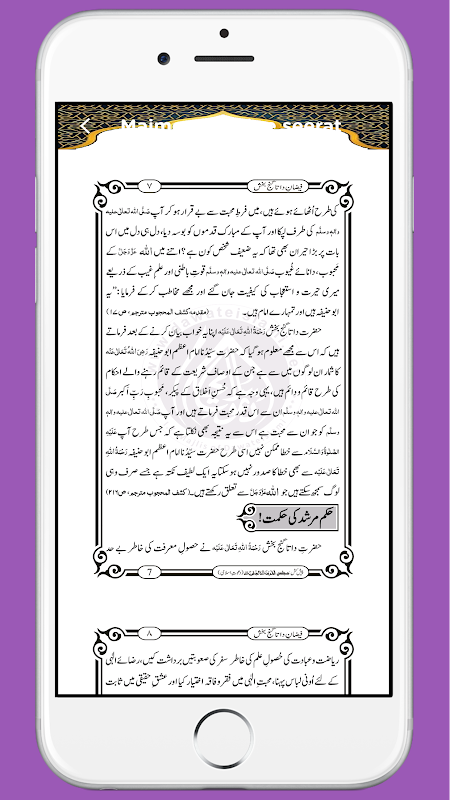 فیضانِ داتا گنج بخش
۷
کی طرح اُٹھائے ہوئے ہیں، میں فرطِ محبت سے بے قرار ہو کر آپ صَلَّی اللہ تَعَالٰی علیہ
واٰلہٖ وسلَّم کی طرف لپکا اور آپ کے مبارک قدموں کو بوسہ دیا، دل ہی دل میں اس
بات پر بڑا حیران بھی تھا کہ یہ ضعیف شخص کون ہے؟ اتنے میں اللہ عَزَّوَجَلَّ کے
محبوب، دانائے غُیوب صَلَّی اللہ تعالٰی علیہ واٰلہٖ وسلَّم قوتِ باطنی اور علمِ غیب کے ذریعے
میری حیرت و استعجاب کی کیفیت جان گئے اور مجھے مخاطب کر کے فرمایا: ”یہ
ابوحنیفہ ہیں اور تمہارے امام ہیں۔ (مقدمہ کشف المحجوب مترجم، ص۱۷)
حضرت داتا گنج بخش رَحْمَۃُ اللہِ تَعَالٰی عَلَیْہ اپنا یہ خواب بیان کرنے کے بعد فرماتے
ہیں کہ اس سے مجھے معلوم ہو گیا کہ حضرت سیِّدُنا امام اعظم ابوحنیفہ رَضِیَ اللہُ تَعَالٰی عَنْہ
کا شمار ان لوگوں میں سے ہے جن کے اوصاف شریعت کے قائم رہنے والے احکام
کی طرح قائم و دائم ہیں، یہی وجہ ہے کہ حُسنِ اَخلاق کے پیکر، محبوبِ رَبِّ اکبر صَلَّی
اللہ تعالٰی علیہ واٰلہٖ وسلَّم ان سے اس قدر محبت فرماتے ہیں اور آپ صَلَّی اللہ تعالٰی علیہ واٰلہٖ
وسلَّم کو جو ان سے محبت ہے اس سے یہ نتیجہ بھی نکلتا ہے کہ جس طرح آپ عَلَیْہِ
الصَّلٰوۃُ وَالسَّلَام سے خطا ممکن نہیں اسی طرح حضرت سیِّدُنا امام اعظم ابوحنیفہ رَحْمَۃُ اللہِ
تَعَالٰی عَلَیْہ سے بھی خطا کا صدور نہیں ہو سکتا یہ ایک لطیف نکتہ ہے جسے صرف وہی
لوگ سمجھ سکتے ہیں جو اللہ عَزَّوَجَلَّ سے تعلق رکھتے ہیں۔ (کشف المحجوب مترجم، ص۲۱۶)
حکمِ مرشد کی حکمت!
حضرتِ داتا گنج بخش رَحْمَۃُ اللہِ تَعَالٰی عَلَیْہ نے حصولِ معرفت کی خاطر بے حد
7
فیضانِ داتا گنج بخش
۸
ریاضت و عبادت کی حُصولِ علم کی خاطر سفر کی صعوبتیں برداشت کیں، رضائے الٰہی
کے لئے اُونی لباس پہنا، محبتِ الٰہی میں فقر و فاقہ اختیار کیا اور عشقِ حقیقی میں ثابت